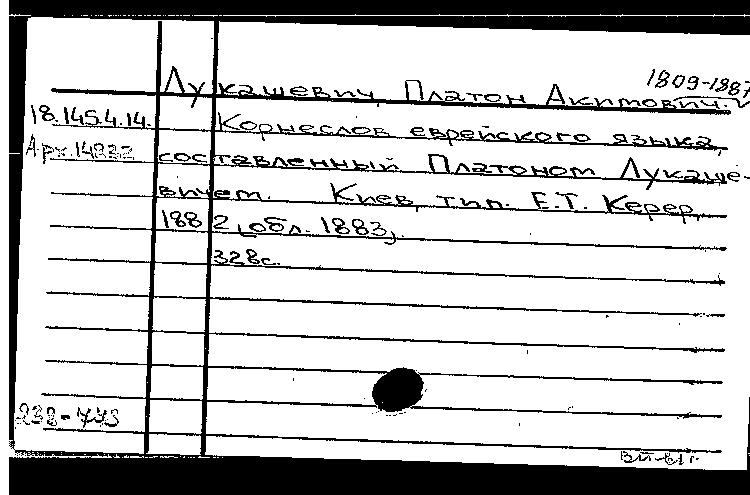 1809-1887
Лукашевич, Платон Акимович.
18.145.4.14. Корнеслов еврейского языка,
Арх.14232 составленный Платоном Лукаше-
вичем. Киев, тип. Е.Т. Керер,
1882 (обл. 1883).
328с.